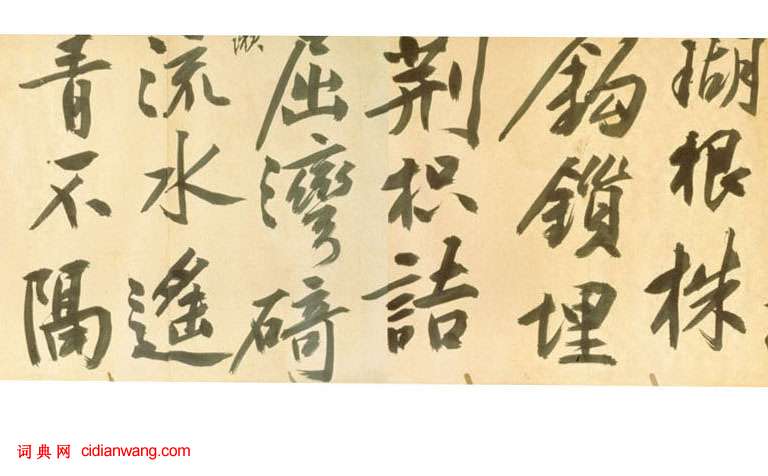 瑚根株
鈎鎖埋
荊枳詰
屈灣碕
流水遙
青不隔
词典网 cidianwang.com